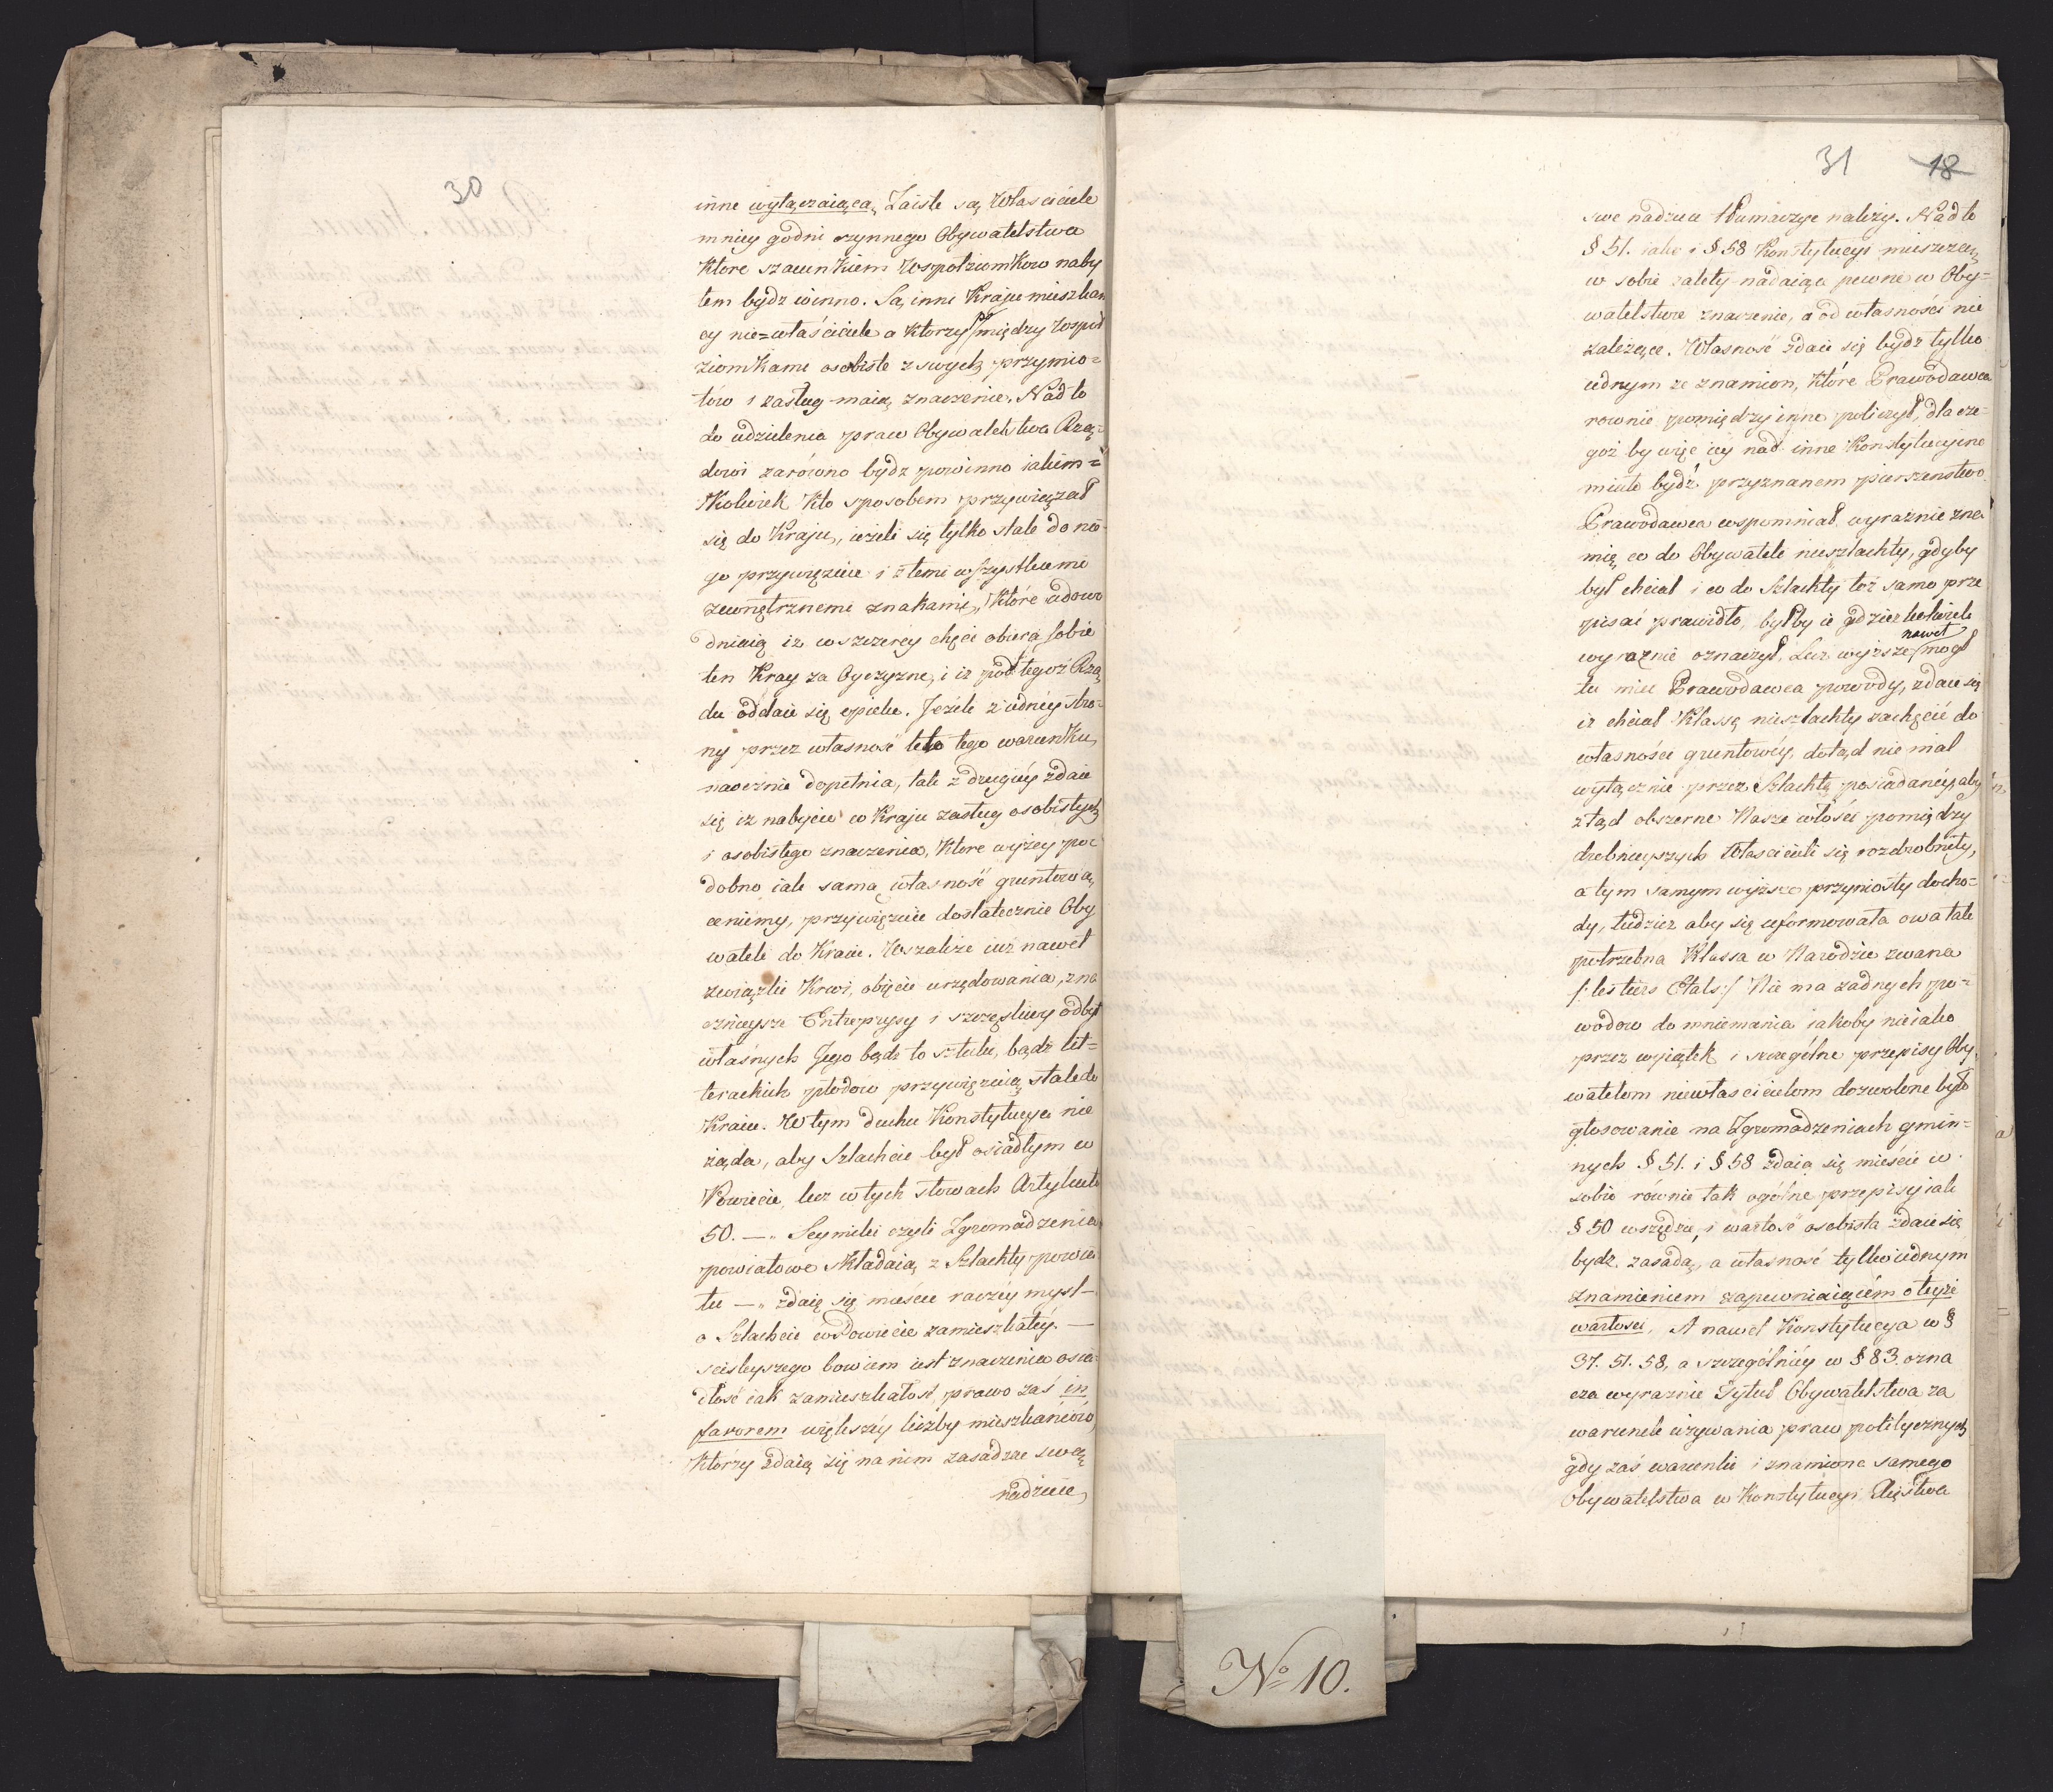 30
inne wyłączaiącą. Zaiste są Właściciele
mniey godni czynnego Obywatelstwa
Ktore szacunkiem Wspołziomkow naby
tem bydz winno. Są inni Kraju mieszkań
cy nie=właściciele a Ktorzy między Wspoł
ziomkami osobiste z swych przymio=
tów i zasług maią znaczenie. Nad to
do udzielenia praw Obywatelstwa Rzą=
dowi zarówno bydz powinno iakim=
Kolwiek Kto sposobem przywiązał
się do Kraju, ieżeli się tylko stale do nie=
go przywięzuie i z temi wszystkiemi
zewnętrznemi znakami, Które udowo
dniaią iz w szczerey chęci obiera sobie
ten Kray za Oyczyznę, i iz pod tegoż Rzą
du oddaie się opiekę. Jeżeli z iednéy stro=
ny przez własność tego warunku
naocznie dopełnia, tak z drugiéy zdaie
się iz nabycie w Kraju zasług osobistych
i osobistego znaczenia, Ktore wyżey po
dobno iak sama własność gruntową
cenimy, przywięzuie dostatecznie Oby
wateli do Kraiu. Wszakże iuż nawet
związki Krwi, obięcie urzędowania, zna
cznieysze Entrepryzy i szczęśliwy odbyt
własnych Jego bądz to sztuki, bądz lit=
terackich płodow przywięzuią stale do
Kraiu. W tym duchu Konstytucya nie
żąda, aby Szlachcic był osiadłym w
Powiecie, lecz w tych słowach Artykułu
50. —„ Seymiki czyli Zgromadzenia
powiatowe składaią z Szlachty powia
tu —„ zdaię się mieście raczéy mysl—
o Szlachcie w Powiecie zamieszkałéy. —
scisleyszego bowiem iest znaczenia osia=
dłość iak zamieszkałość, prawo zaś in
favorem większéy liczby mieszkańców,
Którzy zdaią się na nim zasadzac swą
nadzieie,
31 18
swe nadzieie tłumaczyc należy. Nad to
§ 51. iako i § 58 Konstytucyi mieszczą
w sobie zalety nadaiąc pewne w Oby=
watelstwie znaczenie, a od własności nie
zależące. Własność zdaie się bydz tylko
iednym ze znamion, które Prawodawca
rownie pomiędzy inne policzył, dla cze=
goż by więcéy nad inne Konstytucyine
miało bydź przyznanem pierszenstwo.
Prawodawca wspomniał wyraźnie zna
mię co do Obywateli nieszlachty, gdyby
był chciał i co do Szlachty toż samo prze
pisać prawidło, byłby ie gdzieżkolwiek
wyraznie oznaczył. Lecz wyższe nawet mogł
tu miec Prawodawca powody, zdaie się
iz chciał Klassę nieszlachty zachęcić do
własności gruntowéy, dotąd nie mal
wyłącznie przez Szlachtę posiadanéy, aby
ztąd obszerne Nasze włości pomiędzy
drobnieyszych Właścicieli się rozdrobniły,
a tym samym wyższe przyniosły docho=
dy, tudzież aby się uformowała owa tak
potrzebna Klassa w Narodzie zwana
/: les tiers Etats :/ Nie ma żadnych po=
wodow do mniemania iakoby nieiako
przez wyiątek i szczególne przepisy Oby
watelom niewłaścicielom dozwolone było
głosowanie na Zgromadzeniach gmin=
nych § 51. i § 58 zdaią się mieście w
sobie równie tak ogólne przepisy iak
§ 50 wszędzie, i wartość osobista zdaie się
bydz zasadą, a własność tylko iednym
znamieniem zapewniaiącém o teyże
wartości. A nawet Konstytucya w §
37. 51. 58, a szczególniéy w § 83. ozna
cza wyraznie Tytuł Obywatelstwa za
warunek używania praw politycznych
gdy zaś warunki i znamiona samego
Obywatelstwa w Konstytucyi Xięstwa
No 10.